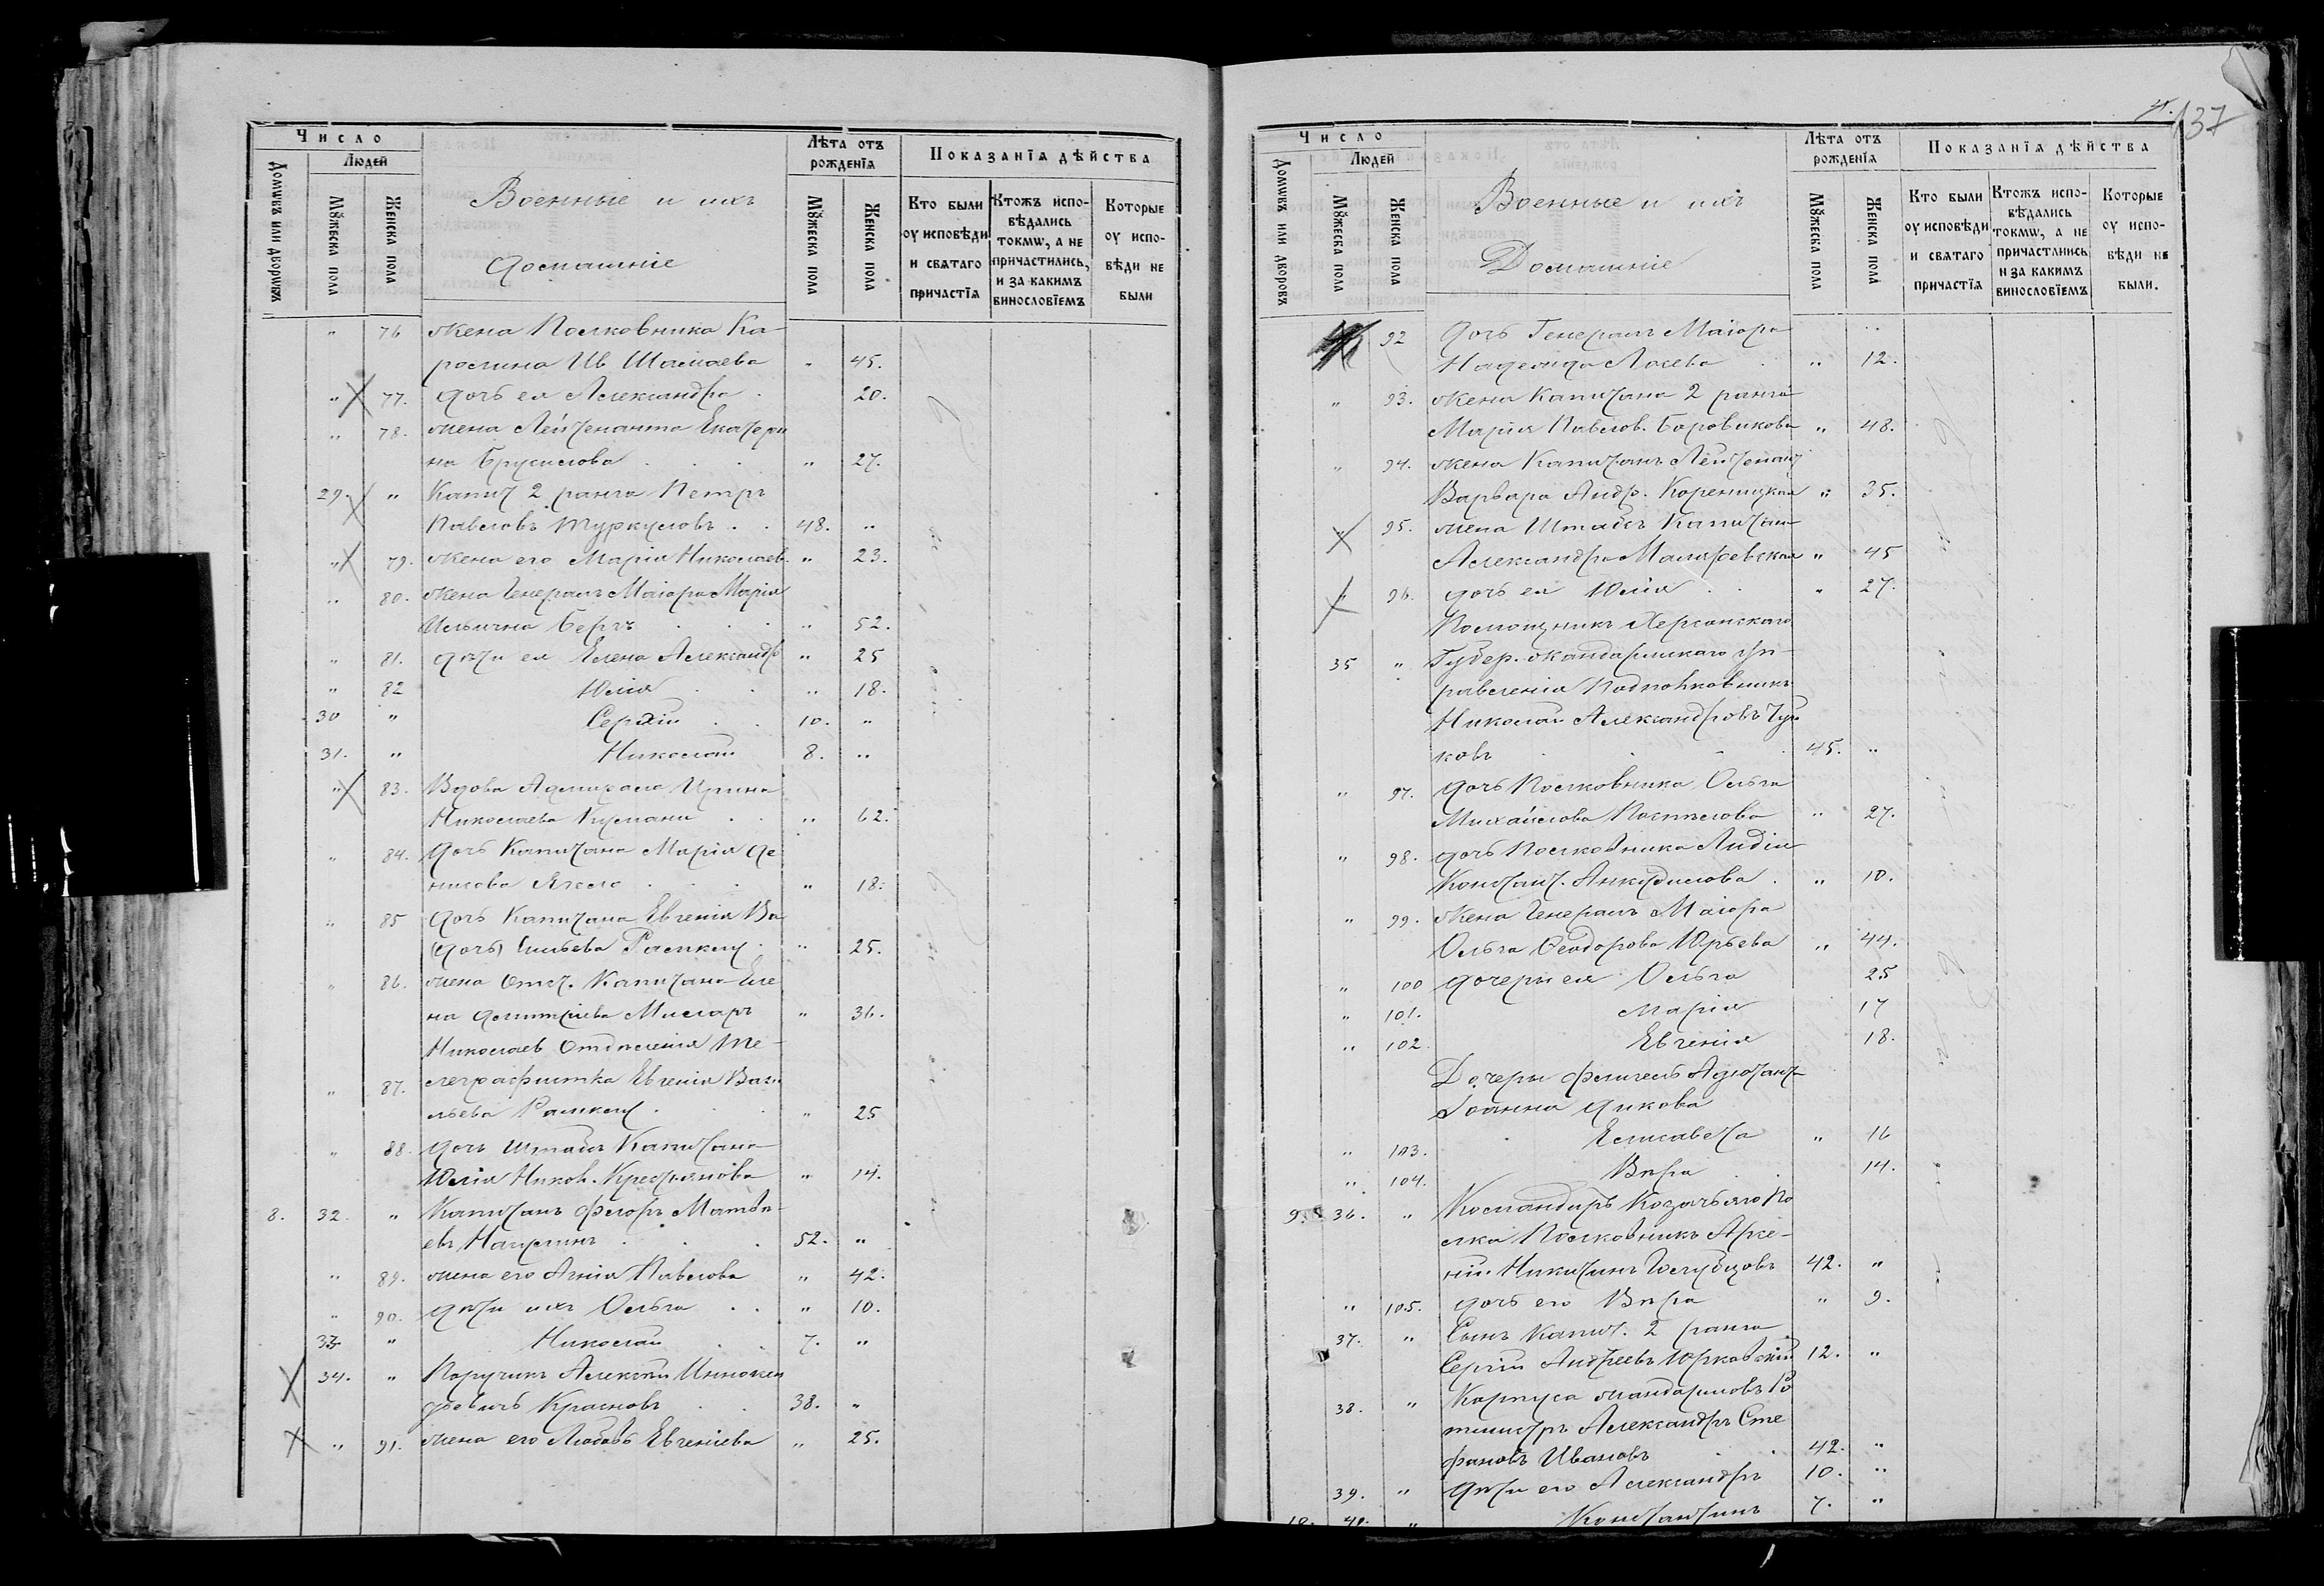 Число
Людей
Домѡвъ или дворѡвъ
Мꙋжеска пола
Женска пола
Военные и ихъ
домашніе
Лѣта отъ рожденїѧ
Мꙋжеска пола
Женска пола
Показанїѧ дѣйства
Кто были оу исповѣди и свѧтаго причастїѧ
Ктожъ испо-вѣдались токмѡ, а не причастились, и за какимъ винословїемъ
Которые оу испо-вѣди не были
" 76 жена Полковника Ка-
ролина Ив " 45.
" 77. дочь ея Александра 20.
" 78. жена Лейтенанта Екатери
на Брусилова " 27.
29. " Капит 2 ранга Петръ
Павловъ Туркуловъ 48. "
" 79. жена его Марія Николаев. " 23.
" 80. жена Генералъ Маіора Марія
Ильична Бергъ " 52.
" 81. дѣти ея Елена Александр " 25
" 82 Юлія " 18.
30 " Сергѣй 10. "
31. " Николай 8. "
" 83. Вдова Адмирала Ирина
Николаева Кумани " 62.
" 84. дочь Капитана Марія Да
нилова " 18.
" 85 дочь Капитана Евгенія Ва
(дочь) сильева " 25.
" 86. жена Отст. Капитана Еле
на Дмитріева " 36.
Николаев Отдѣленія Те-
" 87. леграфистка Евгенія Васи
льева " 25
" 88. дочь Штабъ Капитана
Юлія Никол. Крестьянова " 14.
8. 32. " Капитанъ Флоръ Матвѣ-
евъ 52. "
" 89. жена его Агнія Павлова " 42.
" 90. дѣти ихъ Ольга " 10.
33 " Николай 7. "
34. " Поручикъ Алексѣй Иннокен
тьевичъ Красновъ 38. "
" 91. жена его Любовь Евгеніева " 25.
4. 137
Число
Людей
Домѡвъ или дворовъ
Мꙋжеска пола
Женска пола
Военные и ихъ
Домашніе
Лѣта отъ рожденїѧ
Мꙋжеска пола
Женска пола
Показанїѧ дѣйства
Кто были оу исповѣди и свѧтаго причастїѧ
Ктожъ испо-вѣдались токмѡ, а не причастились и за какимъ винословїемъ
Которые оу испо-вѣди не были.
92 дочь Генералъ Маіора
Надежда Лосева " 12.
" 93. жена Капитана 2 ранга
Марія Павлов. Боровикова " 48.
" 94. жена Капитанъ Лейтенант
Варвара Андр. Кореницкая " 35.
" 95. жена Штабсъ Капитана
Александра " 45
" 96. дочь ея Юлія " 27.
Помощникъ Херсонскаго
35 " Губер. жандармскаго уп-
равленія Подполковникъ
Николай Александровъ Чуй
ковъ 45. "
" 97. дочь Полковника Ольга
Михайлова Поспѣлова " 27.
" 98. дочь Полковника Лидія
Констант. Анкудинова " 10.
" 99. жена Генералъ Маіора
Ольга Ѳеодорова Юрьева " 44.
" 100 дочери ея Ольга 25
" 101. Марія 17
" 102. Евгенія 18.
Дочери флигель Адютанта
Іоанна Дикова
" 103. Елисавета " 16
" 104. Вѣра 14.
9. 36. " Командиръ Козачьяго По
лка Полковникъ Арсе-
ній Никитинъ Голубцовъ 42. "
" 105. дочь его Вѣра " 9.
37. " Сынъ Капит. 2 ранга
Сергій Андреевъ Юрковскій 12. "
38. " Корпуса жандармовъ Ро
тмистръ Александръ Сте
фановъ Ивановъ 42. "
39. " дѣти его Александръ 10. "
10. 40. " Константинъ 7. "